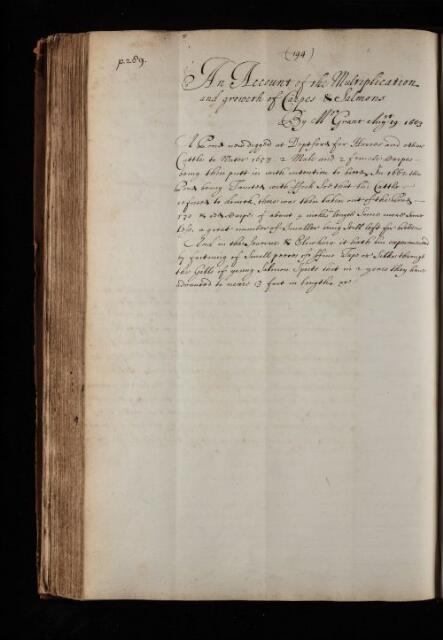 p.289.
(194)
An Account of the Multiplication
and growth of Carpes & Salmons
By Mr Grant Aug: 19. 1663
A Pond new digged at Deptford for Horses and other
Cattle to Water 1658 2 Male and 2 female Carpes
being then putt in with intention to breed, In 1662 the
Pond being with soe that the Cattle
refused to drinck, there was then taken out of the Pond
Carps of about 9 inches length Some more Some
less. a great number of Smaller being Still left for breed
And in the & it hath bin experimented
by fastening of Small peeces of Tape or Silke through
the Gills of young Salmon that in 2 yeares they have
advanced to neere 3 foot in length